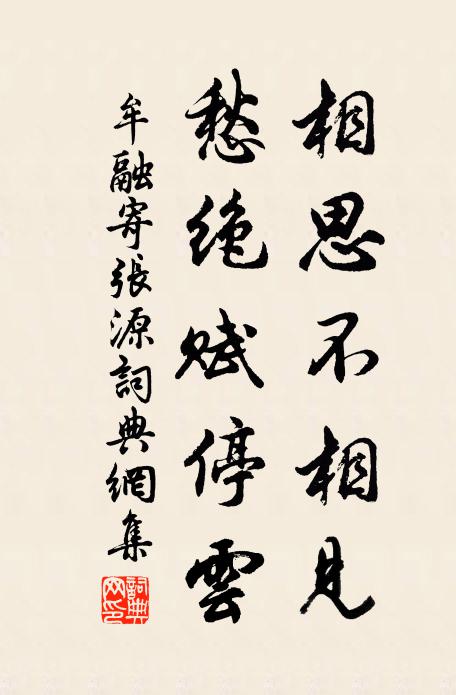 相思不相見
愁絶賦停雲
牟融寄張源詞典網集
詞典網印